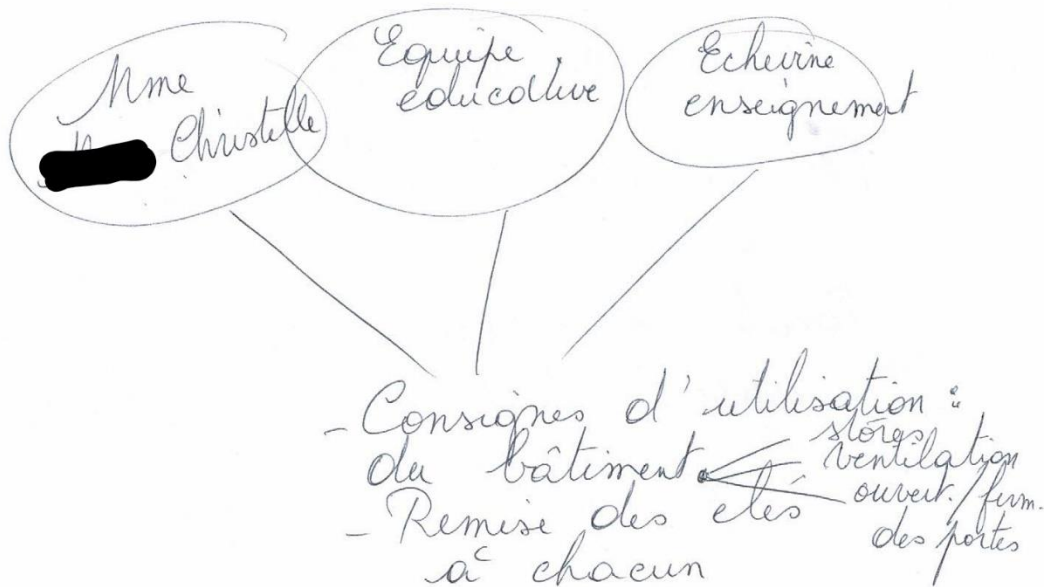 Mme
Christelle
Equipe
éducative
Echevine
enseignement
- Consignes d'utilisation :
du bâtiment
stores
ventilation
ouvert. / ferm.
des portes
- Remise des clés
à chacun